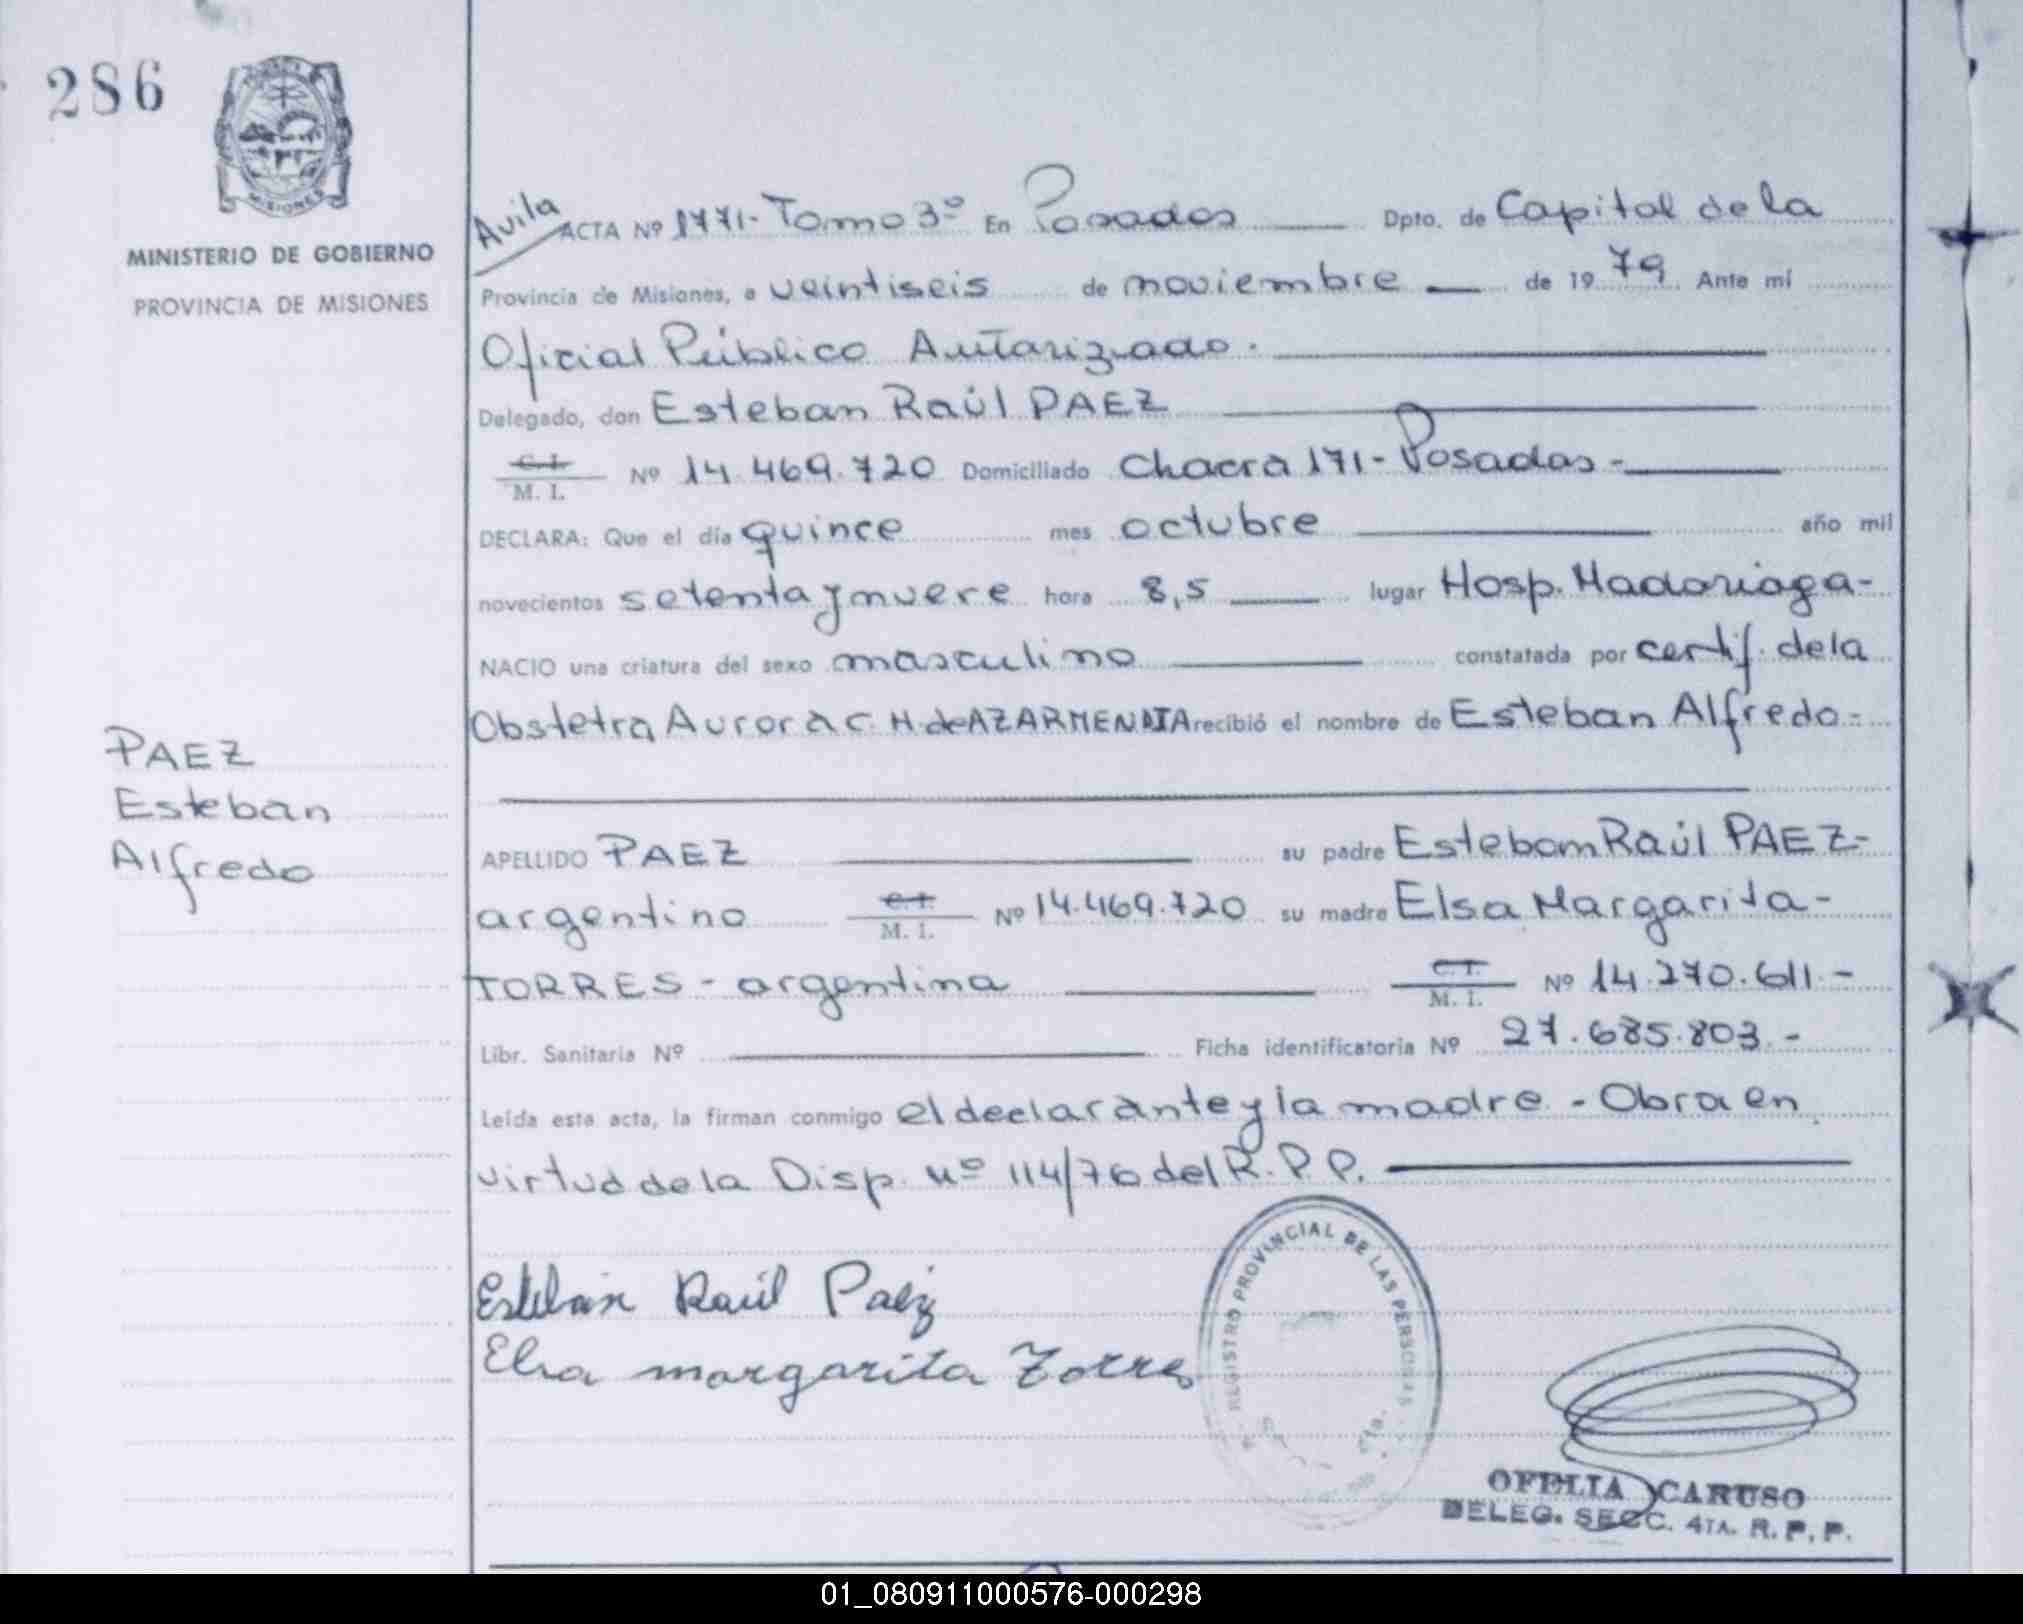 286
MISIONES
MINISTERIO DE GOBIERNO
PROVINCIA DE MISIONES
PAEZ
Esteban
Alfredo
Avila
ACTA Nº 1771- Tomo 3º En Posadas Dpto. de Capital de la
Provincia de Misiones, a veintiseis de noviembre de 1979 Ante mí
Oficial Público Autorizado.
Delegado, don Esteban Raúl PAEZ
C.I.
M. I. Nº 14.469.720 Domiciliado Chacra 171- Posadas-
DECLARA: Que el día quince mes octubre año mil
novecientos setenta y nueve hora 8,5 lugar Hosp. Madariaga-
NACIO una criatura del sexo masculino constatada por certif. de la
Obstetra Aurora C. H. de AZARMENDIA recibió el nombre de Esteban Alfredo-
APELLIDO PAEZ su padre Esteban Raúl PAEZ-
argentino C.I. M. I. Nº 14.469.720 su madre Elsa Margarita-
TORRES - argentina C.I. M. I. Nº 14.270.611.-
Libr. Sanitaria Nº Ficha identificatoria Nº 27.685.803.-
Leída esta acta, la firman conmigo el declarante y la madre - Obra en
virtud de la Disp. Nº 114/76 del R.P.P.
Esteban Raúl Paéz
Elsa margarita Torres
REGISTRO PROVINCIAL DE LAS PERSONAS
4ta.
OFELIA CARUSO
DELEG. SECC. 4TA. R. P. P.
01_080911000576-000298